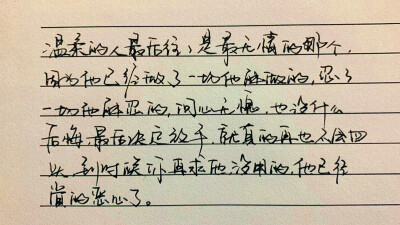 温柔的人最后往往是最无情的那个,
因为他已经做了一切他能做的,忍了
一切他能忍的,问心无愧,也没什么
后悔.最后决定放手,就真的再也不会回
头,到时候你再求他没用的,他已经
真的死心了。